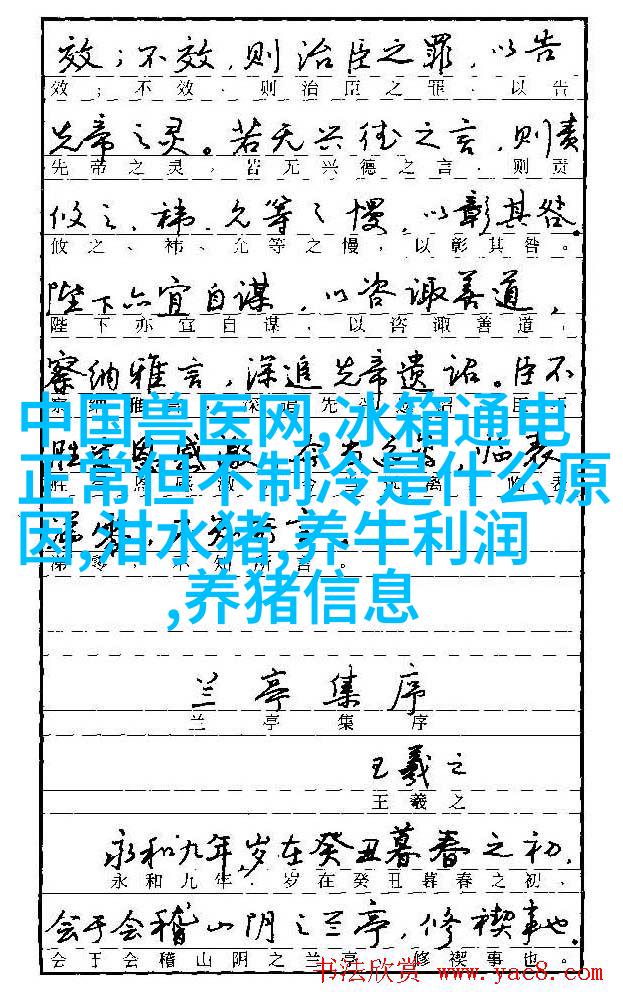 效；不效，则治臣之罪，以告
效；不效、则治臣之罪、以告
先帝之灵。若无兴德之言，则责
先帝之灵，若无兴德之言、则责
攸之、祎、允等之慢，以彰其咎。
攸之、祎、允等之慢，以彰其咎。
陛下亦宜自谋，以咨诹善道，
陛下亦宜自谋，以咨诹善道，
察纳雅言，深追先帝遗诏。臣不
中国兽医网,冰箱通电
正常但不制冷是什么原
因,泔水猪,养牛利润
,养猪信息
不知所言。
兰亭集序
兰亭集序
王羲之
王羲之
永和九年,岁在癸丑暮春之初,
永和九年．岁在癸丑暮春之初、
会于会稽山阴之兰亭,修禊事也.
会于会稽山阴之兰亭 修禊事也。
书法欣赏 www.yac8.com